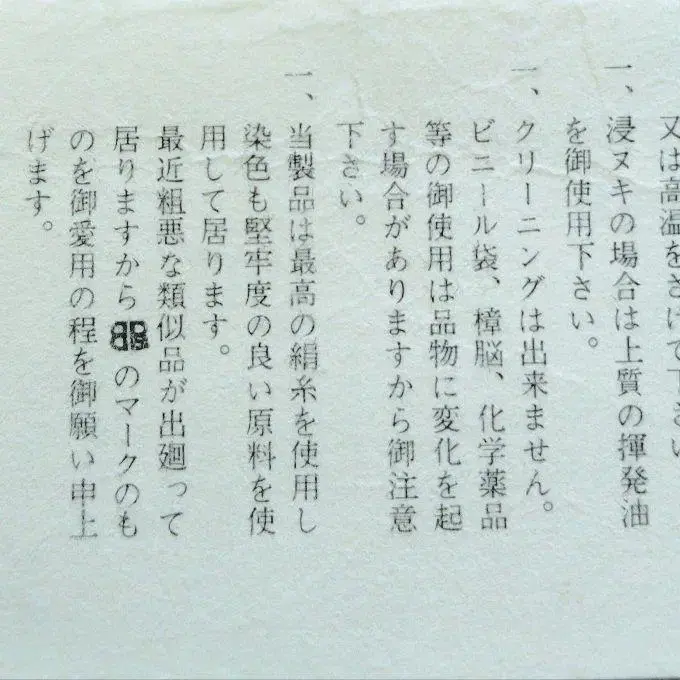 又は高温をさけて下さい
一、浸ヌキの場合は上質の揮発油
を御使用下さい。
一、クリーニングは出来ません。
ビニール袋、樟脳、化学薬品
等の御使用は品物に変化を起
す場合がありますから御注意
下さい。
一、当製品は最高の絹糸を使用し
染色も堅牢度の良い原料を使
用して居ります。
最近粗悪な類似品が出廻って
居りますからのマークのも
のを御愛用の程を御願い申上
げます。